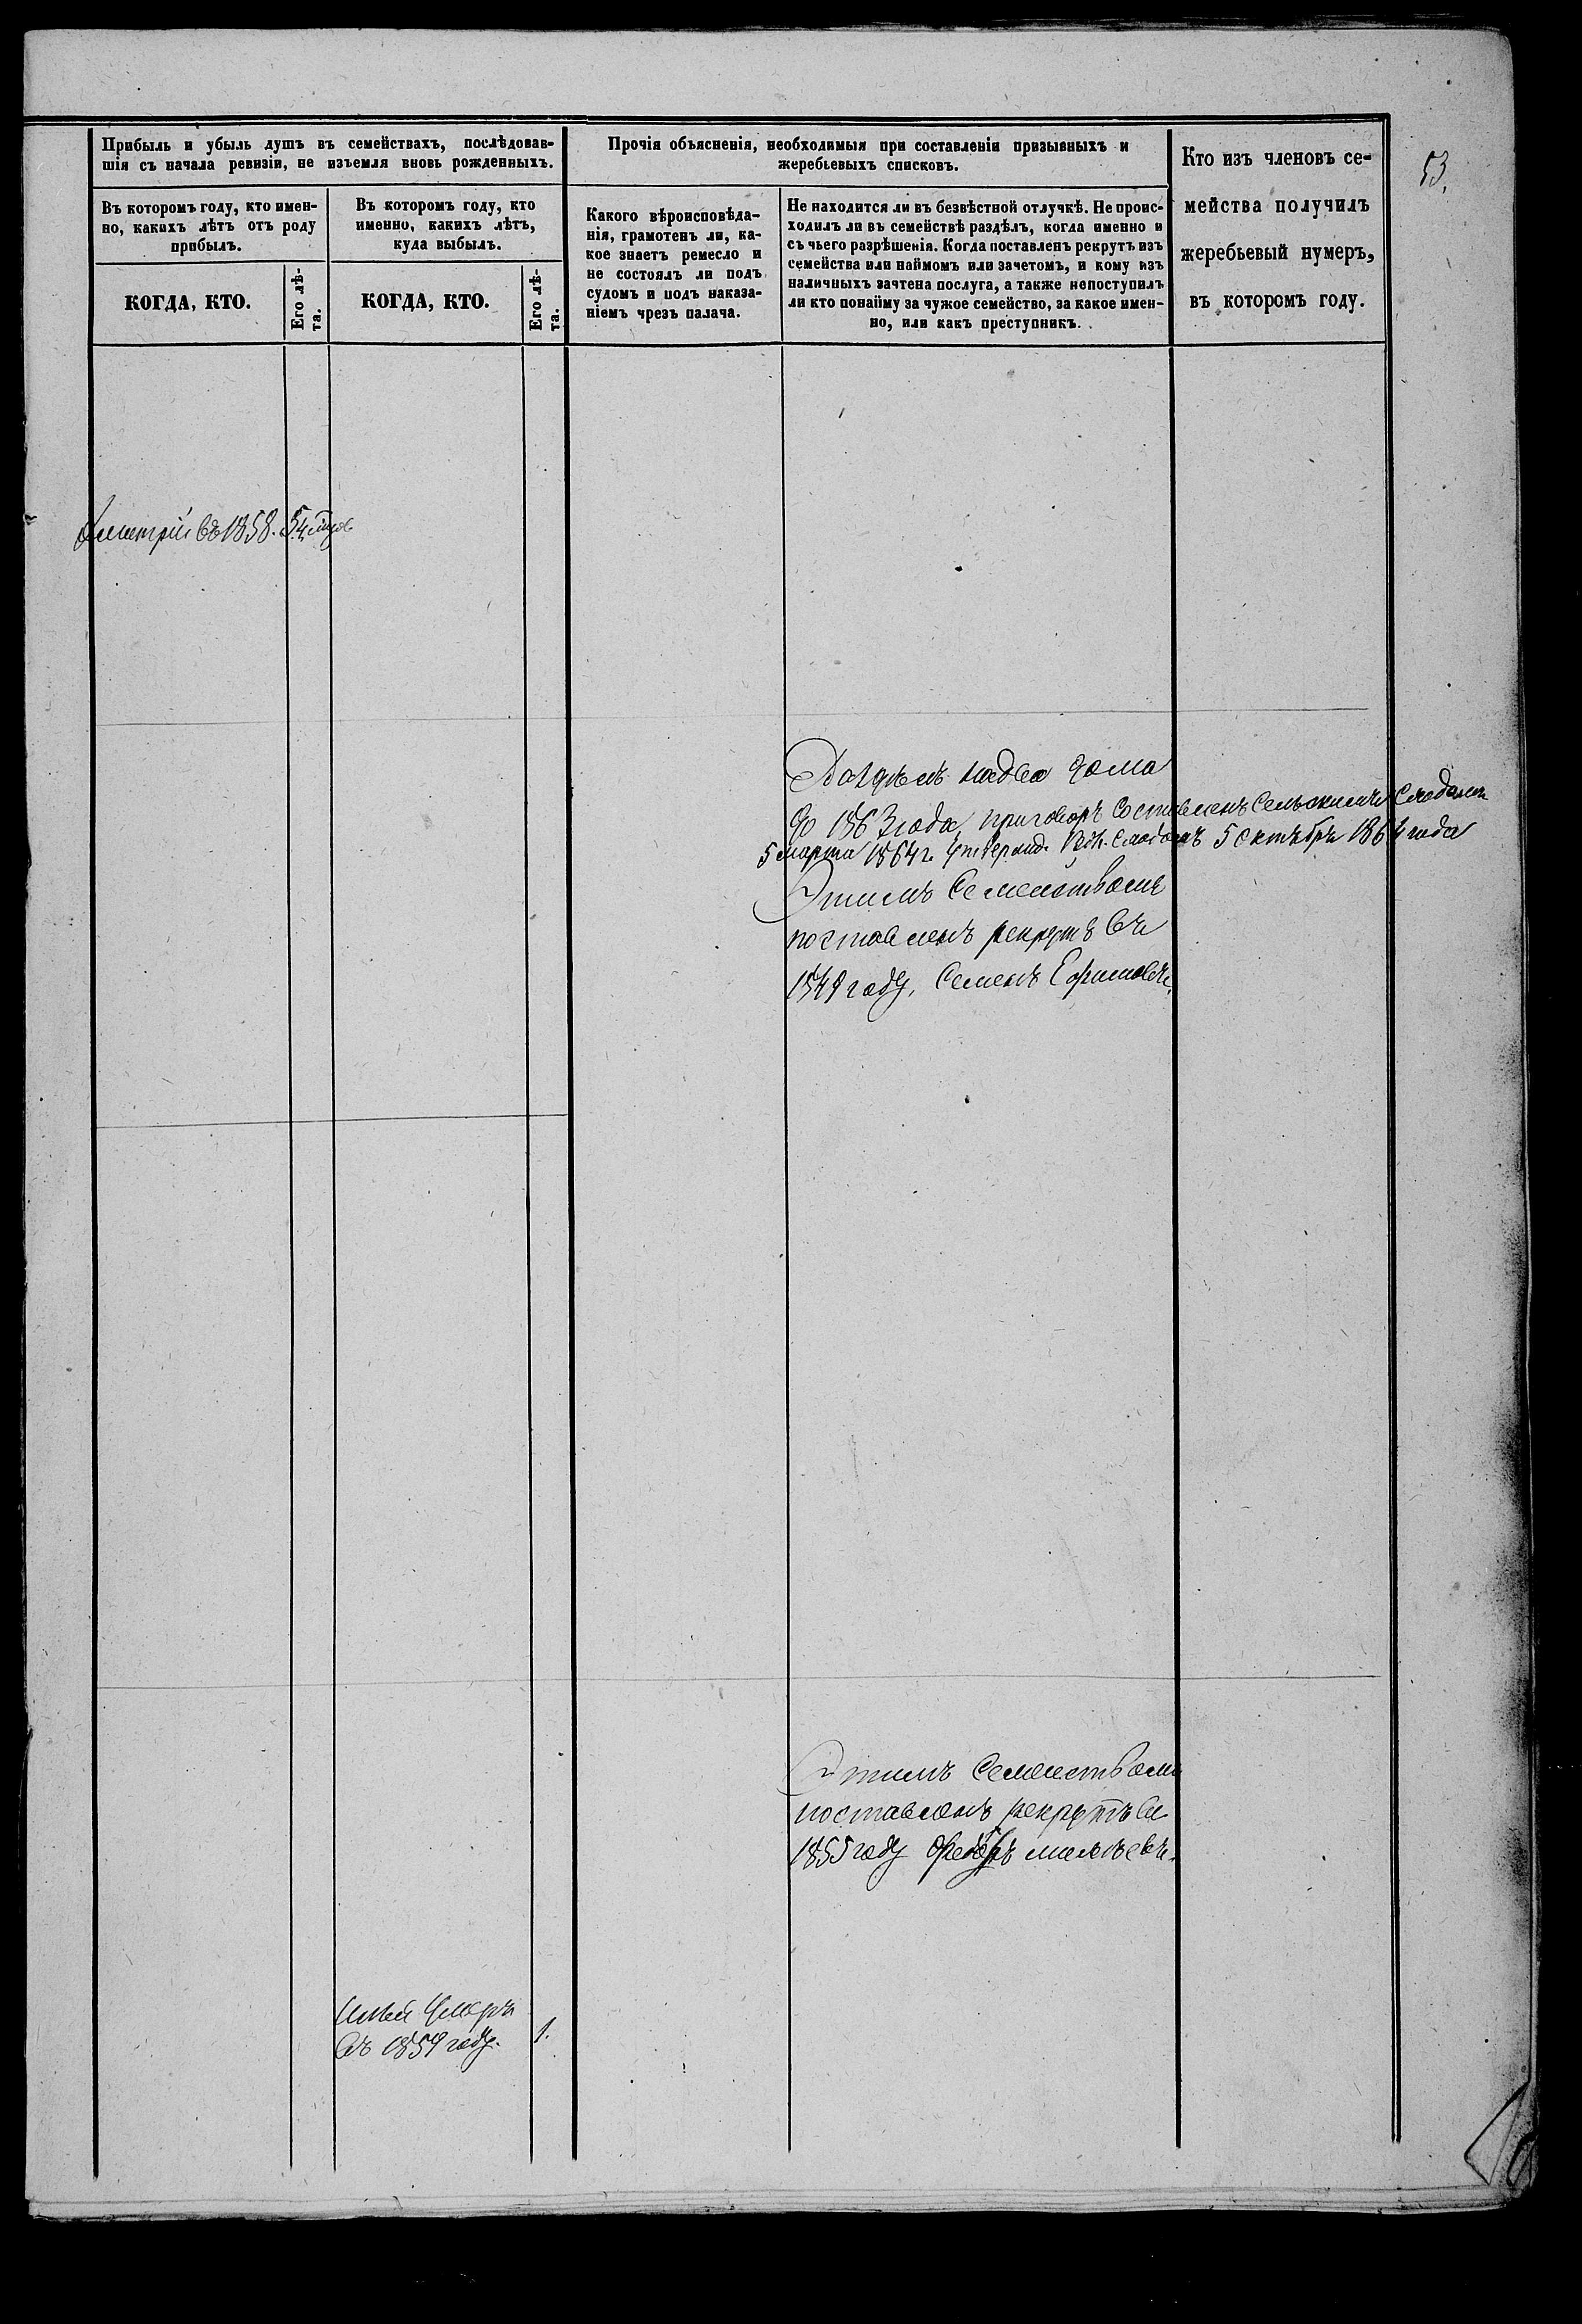 53.
Прибыль и убыль душъ въ семействахъ, послѣдовав-
шія съ начала ревизіи, не изъемля вновь рожденныхъ.
Въ которомъ году, кто имен-
но, какихъ лѣтъ отъ роду
прибылъ.
КОГДА, КТО.
Его лѣ-
та.
Въ которомъ году, кто
именно, какихъ лѣтъ,
куда выбылъ.
КОГДА, КТО.
Его лѣ-
та.
Прочія объясненія, необходимыя при составленіи призывныхъ и
жеребьевыхъ списковъ.
Какого вѣроисповѣда-
нія, грамотенъ ли, ка-
кое знаетъ ремесло и
не состоялъ ли подъ
судомъ и подъ наказа-
ніемъ чрезъ палача.
Не находится ли въ безвѣстной отлучкѣ. Не проис-
ходилъ ли въ семействѣ раздѣлъ, когда именно и
съ чьего разрѣшенія. Когда поставленъ рекрутъ изъ
семейства или наймомъ или зачетомъ, и кому изъ
наличныхъ зачтена послуга, а также непоступилъ
ли кто понайму за чужое семейство, за какое имен-
но, или какъ преступникъ.
Кто изъ членовъ се-
мейства получилъ
жеребьевый нумеръ,
въ которомъ году.
Дмитрій въ 1858.
надва дома
до 1863 года, приговоръ составленъ Сельскимъ Сходомъ
5 марта 1864 г. Сходомъ 5 октября 1864 года
Этимъ Семействомъ
поставленъ рекрутъ въ
1849 году, Семенъ Ефимовъ.
Этимъ Семеиствомъ
поставленъ рекрутъ въ
1855 году Федоръ
Умеръ
въ 1859 году.
1.